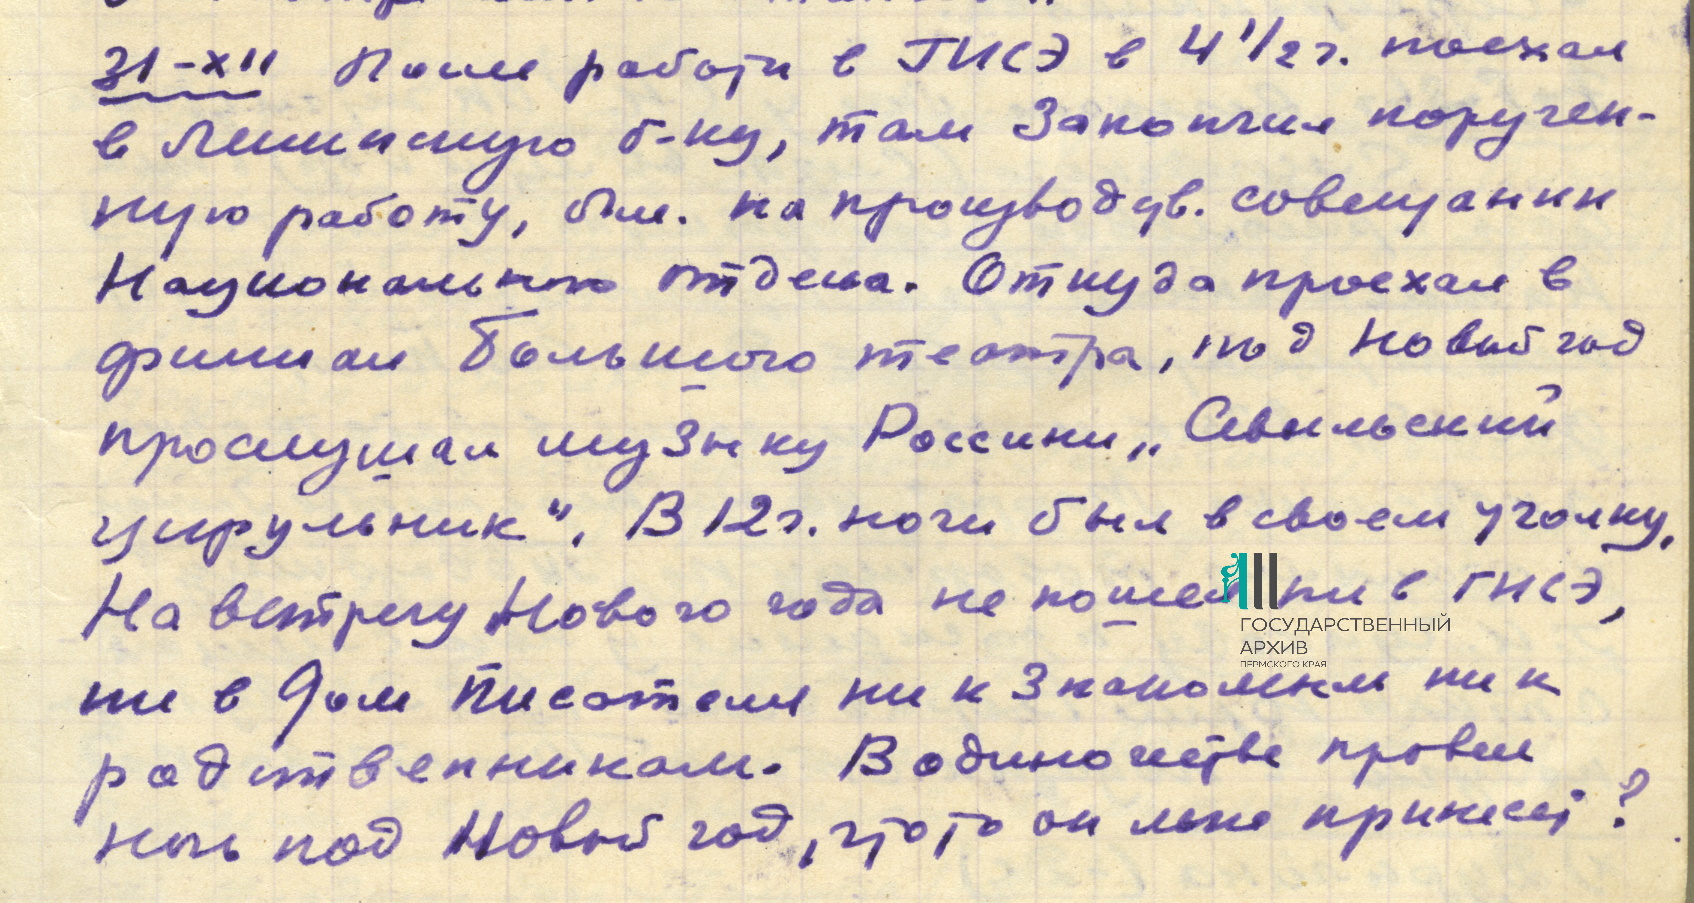 31-XII После работы в ГИСЭ в 4 1/2 г. поехал
в Ленинскую б-ку, там закончил поручен-
ную работу, был. на производств. совещании
Национального отдела. Откуда проехал в
филиал Большого театра, под Новый год
прослушал музыку Россини „Севильский
цирульник“. В 12 г. ночи был в своем уголку.
На встречу Нового года не пошел ни в ГИСЭ,
ГОСУДАРСТВЕННЫЙ
АРХИВ
ПЕРМСКОГО КРАЯ
ни в Дом Писателя ни к знакомым ни к
родственникам. В одиночестве провел
ночь под Новый год, что-то он мне принесет?